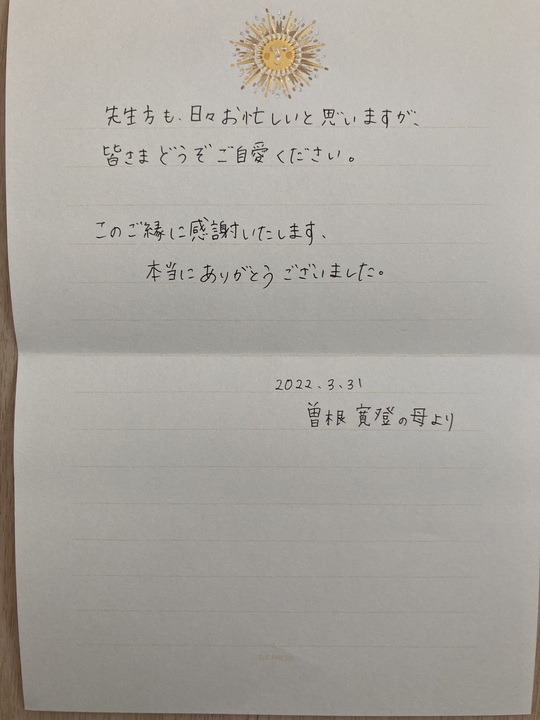 先生方も、日々お忙しいと思いますが、
皆さまどうぞご自愛ください。
このご縁に感謝いたします、
本当にありがとうございました。
2022.3.31
曽根 寛登の母より